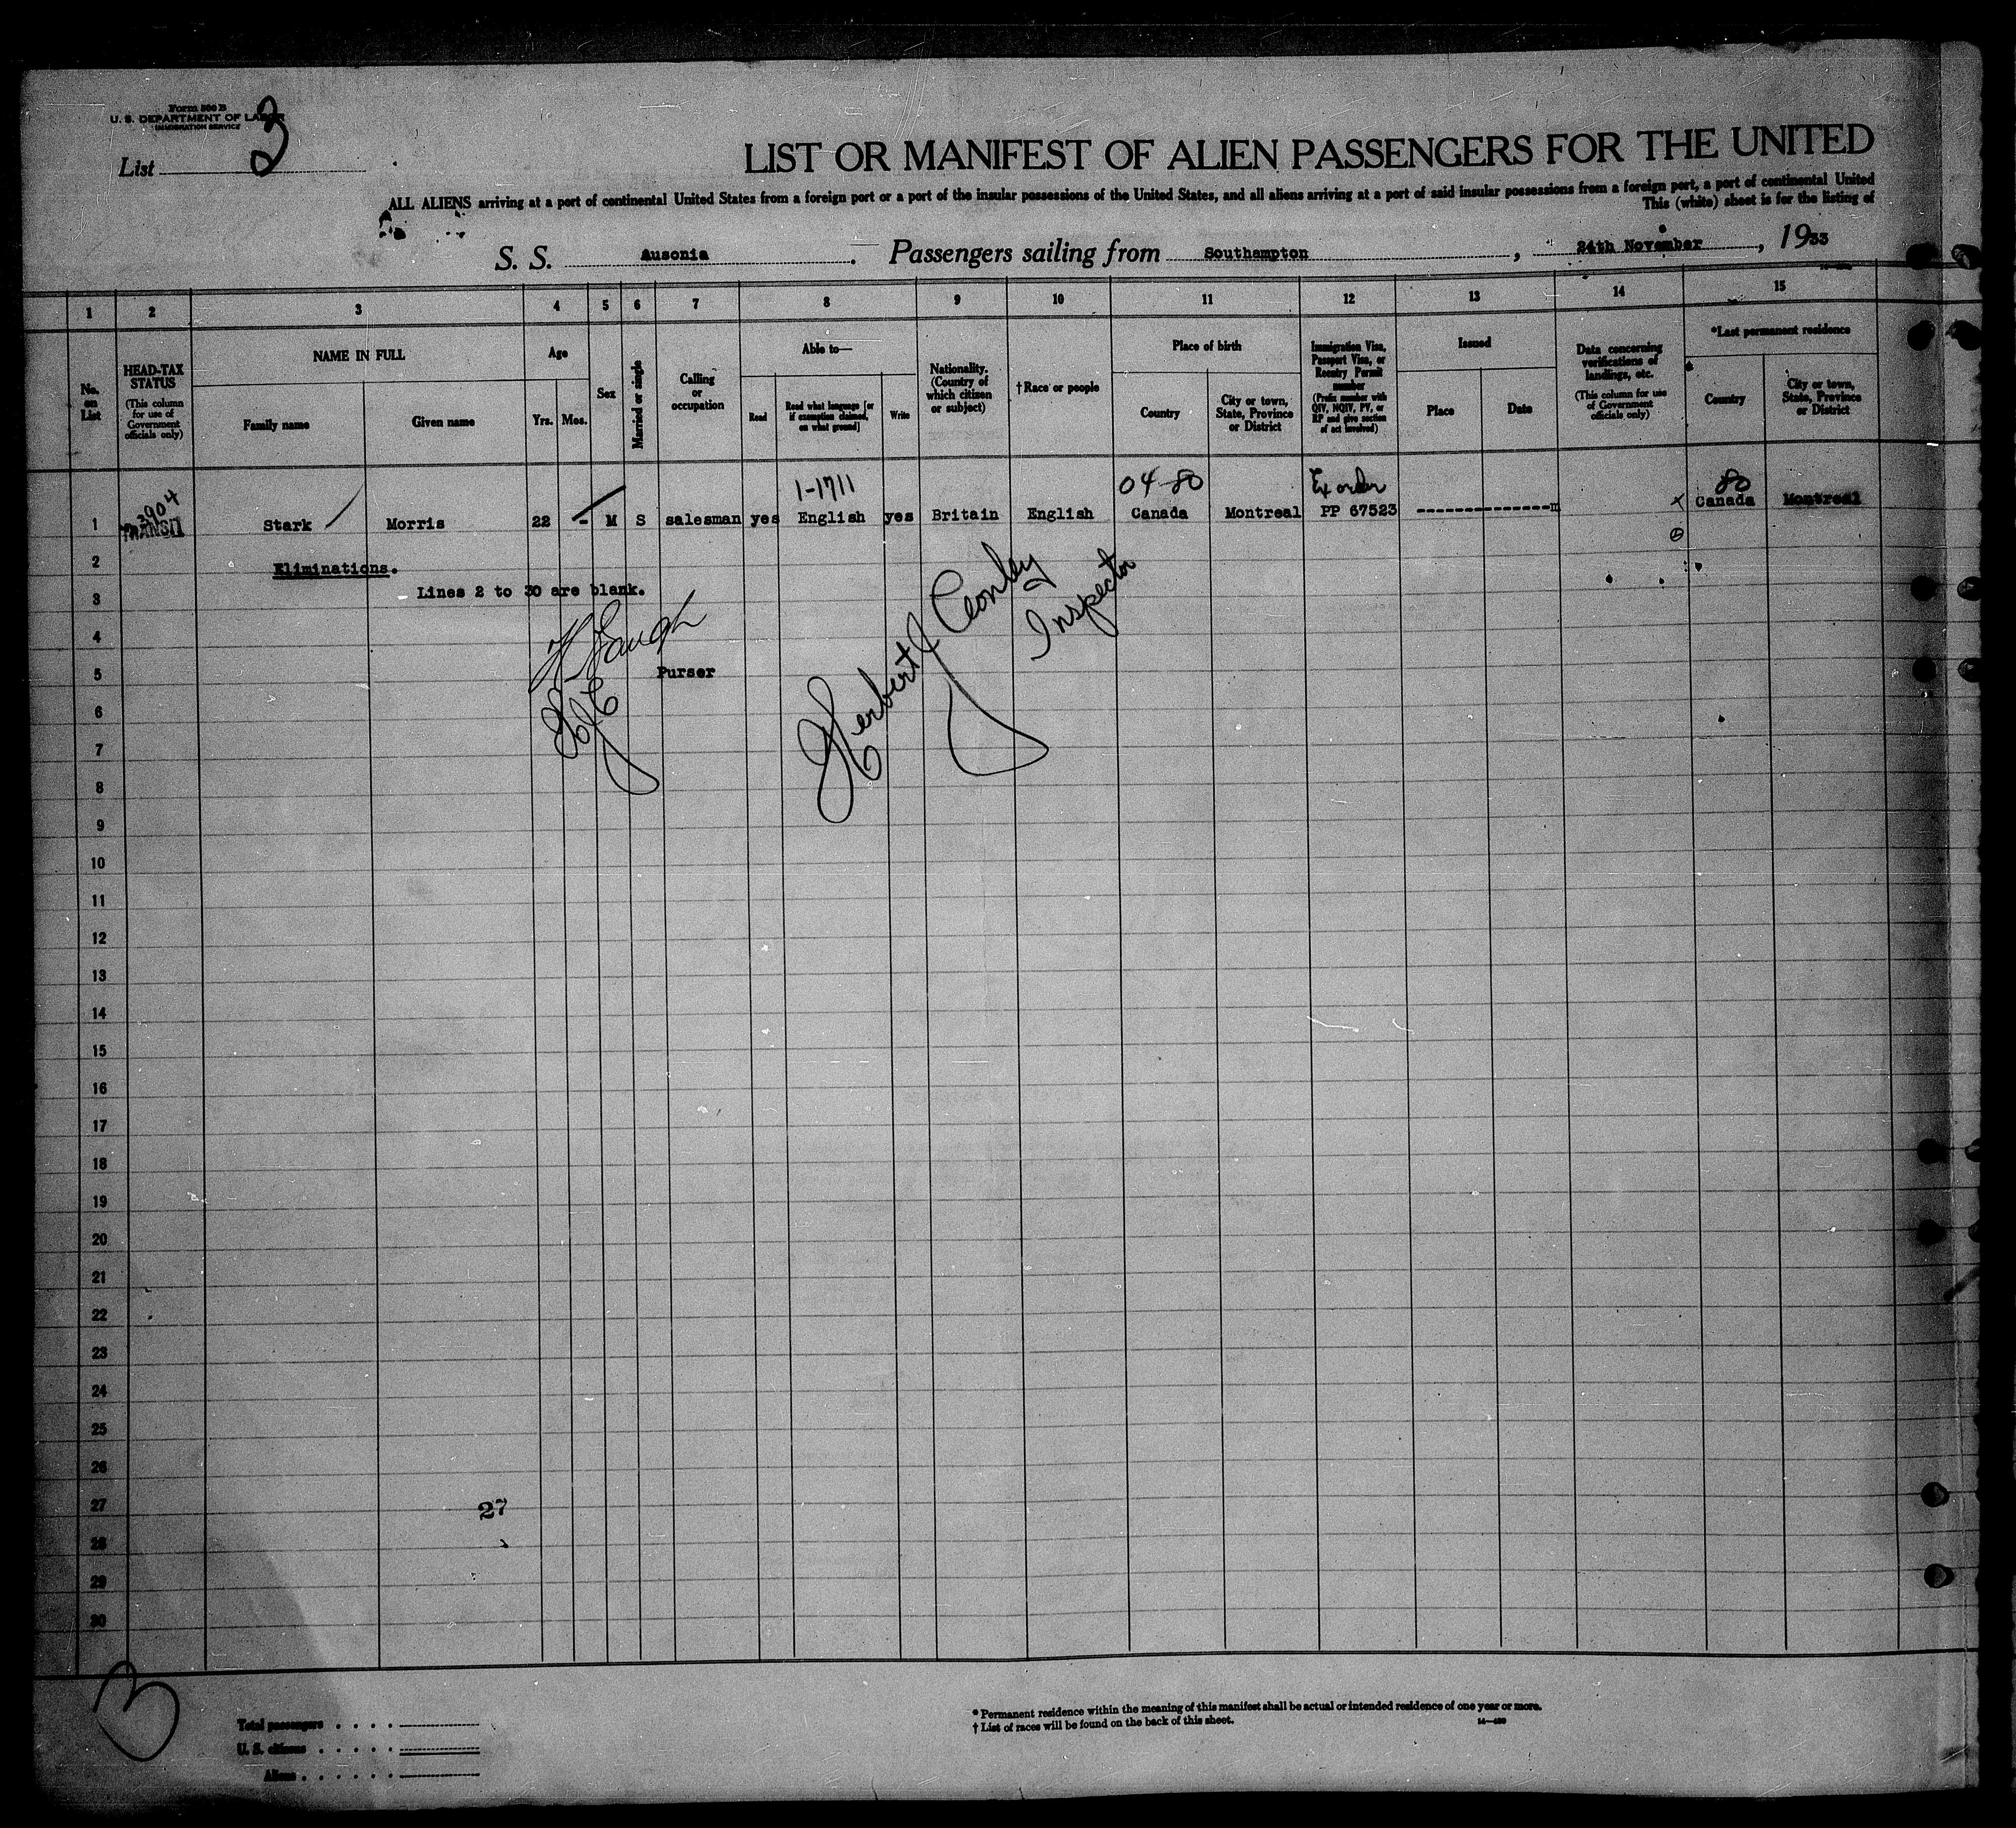 Form 500 B
U. S. DEPARTMENT OF LABOR
IMMIGRATION SERVICE
List 3
LIST OR MANIFEST OF ALIEN PASSENGERS FOR THE UNITED
ALL ALIENS arriving at a port of continental United States from a foreign port or a port of the insular possessions of the United States, and all aliens arriving at a port of said insular possessions from a foreign port, a port of continental United
This (white) sheet is for the listing of
S. S. Ausonia. Passengers sailing from Southampton, 24th November, 1933
1 2 3 4 5 6 7 8 9 10 11 12 13 14 15
No. on List
HEAD-TAX STATUS (This column for use of Government officials only)
NAME IN FULL
Family name
Given name
Age
Yrs. Mos.
Sex
Married or single
Calling or occupation
Able to—
Read
Read what language [or if exemption claimed, on what ground]
Write
Nationality. (Country of which citizen or subject)
†Race or people
Place of birth
Country
City or town, State, Province or District
Immigration Visa, Passport Visa, or Reentry Permit number (Prefix number with QIV, NQIV, PV, or RP and give section of act involved)
Issued
Place
Date
Data concerning verifications of landings, etc. (This column for use of Government officials only)
*Last permanent residence
Country
City or town, State, Province or District
2904 1-1711 04-80 Ex order 80
1 TRANSIT Stark Morris 22 - M S salesman yes English yes Britain English Canada Montreal PP 67523 --------------- x Canada Montreal
2 Eliminations.
3 Lines 2 to 30 are blank.
4
5 Purser
Herbert J Conley
Inspector
6
7
8
9
10
11
12
13
14
15
16
17
18
19
20
21
22
23
24
25
26
27 27
28
29
30
3
Total passengers
U. S. citizens
Aliens
* Permanent residence within the meaning of this manifest shall be actual or intended residence of one year or more.
† List of races will be found on the back of this sheet.